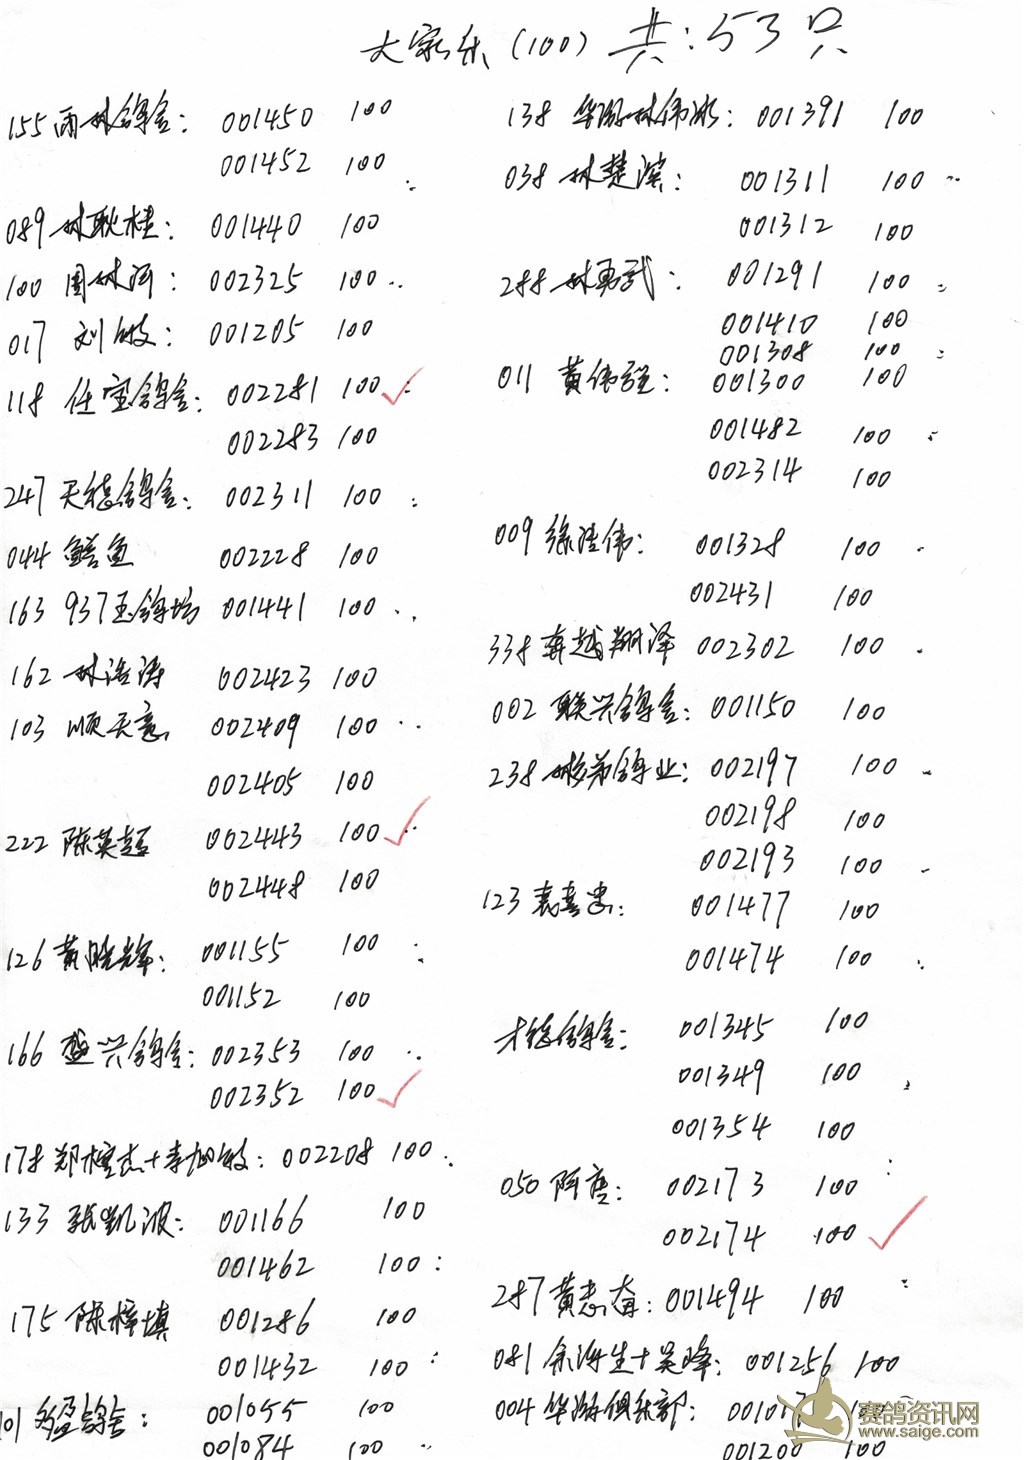 大家乐(100) 共:53只
155 雨林鸽舍: 001450 100
001452 100
089 林耿桂: 001440 100
100 周林河: 002325 100
017 刘敏: 001205 100
118 任宝鸽舍: 002281 100
002283 100
247 天德鸽舍: 002311 100
044 鳝鱼 002228 100
163 937玉鸽坊 001441 100
162 林浩涛 002423 100
103 顺天意 002409 100
002405 100
222 陈英超 002443 100
002448 100
126 黄晓辉: 001155 100
001152 100
166 盛兴鸽舍: 002353 100
002352 100
178 郑植杰+李旭敏: 002208 100
133 张凯波: 001166 100
001462 100
175 陈梓填 001286 100
001432 100
101 多盈鸽舍: 001055 100
001084 100
138 华游林伟彬: 001391 100
038 林楚滨: 001311 100
001312 100
288 林勇武: 001291 100
001410 100
001308 100
011 黄伟雄: 001300 100
001482 100
002314 100
009 徐浩伟: 001328 100
002431 100
338 奔越翔泽 002302 100
002 联兴鸽舍: 001150 100
238 彬弟鸽业: 002197 100
002198 100
002193 100
123 袁喜忠: 001477 100
001474 100
才德鸽舍: 001345 100
001349 100
001354 100
050 阿唐: 002173 100
002174 100
287 黄志奋: 001494 100
081 余海生+吴峰: 001256 100
004 华游俱乐部:
001200 100
赛鸽资讯网
www.saige.com